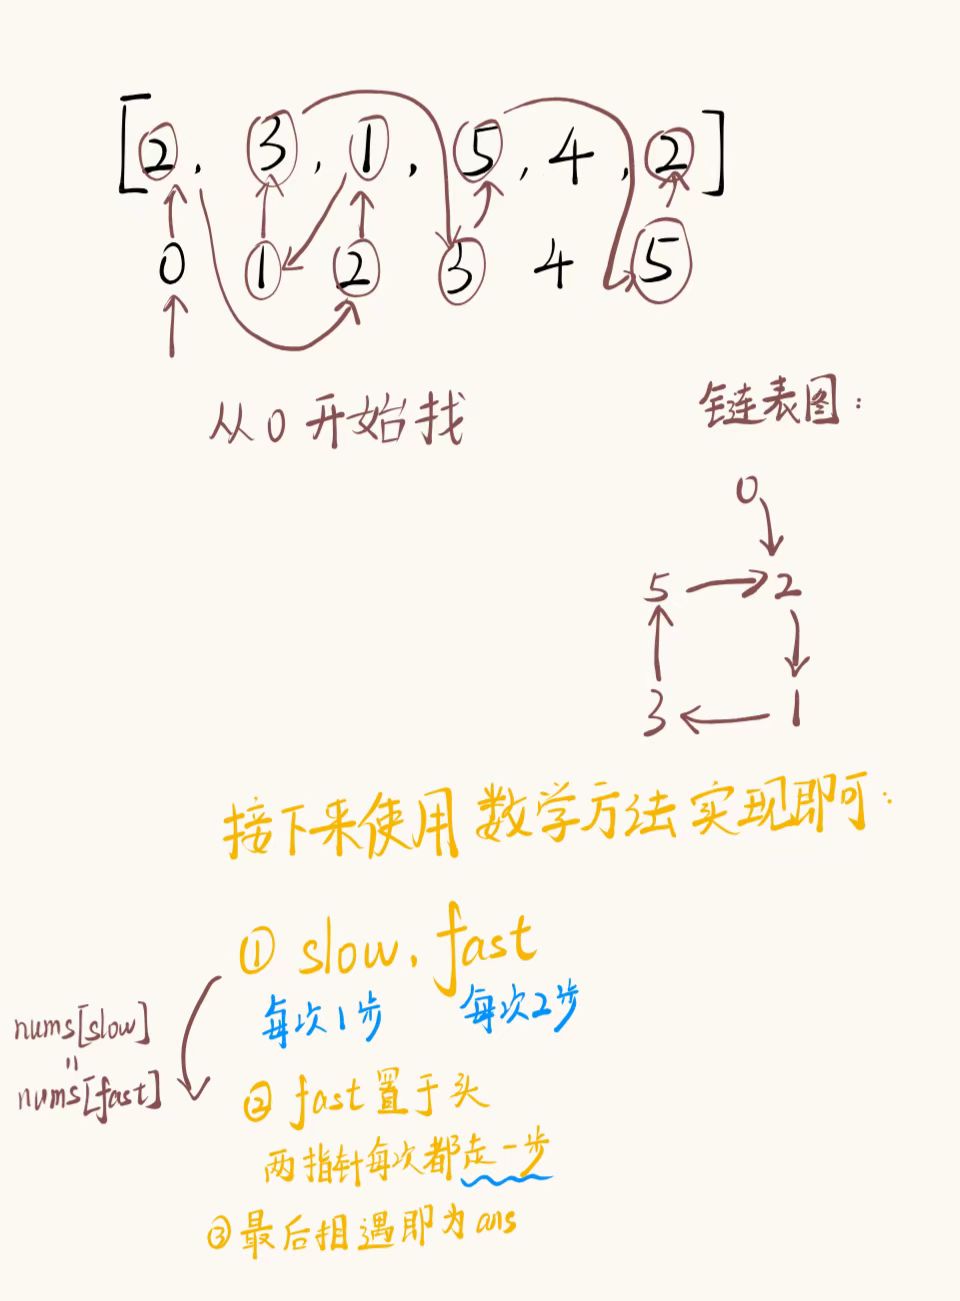 [2, 3, 1, 5, 4, 2]
0 1 2 3 4 5
从0开始找
链表图:
0
5 2
3 1
接下来使用数学方法实现即可:
① slow, fast
每次1步 每次2步
nums[slow]
=
nums[fast]
② fast置于头
两指针每次都走一步
③最后相遇即为ans